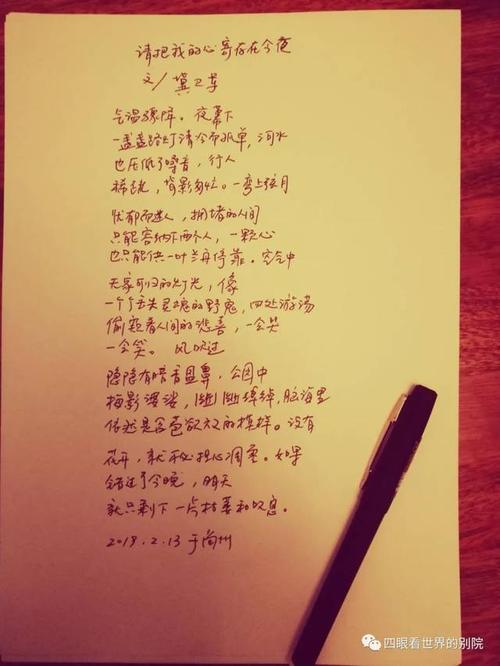 请把我的心寄存在今夜
文/冀卫军
气温骤降。夜幕下
一盏盏路灯清冷而孤单,河水
也压低了嗓音,行人
稀疏,背影匆忙。一弯上弦月
忧郁而迷人,拥堵的人间
只能容纳下两个人,一颗心
也只能供一叶兰舟停靠。空气中
无家可归的灯光,像
一个个丢失灵魂的野鬼,四处游荡
偷窥着人间的悲喜,一会哭
一会笑。风吹过
隐隐有暗香盈鼻,公园中
梅影婆娑,脑海里
依然是含苞欲放的模样。没有
花开,就不必担心凋零。如果
错过了今晚,明天
就只剩下一片枯萎和叹息。
2019.2.13于兰州
四眼看世界的别院